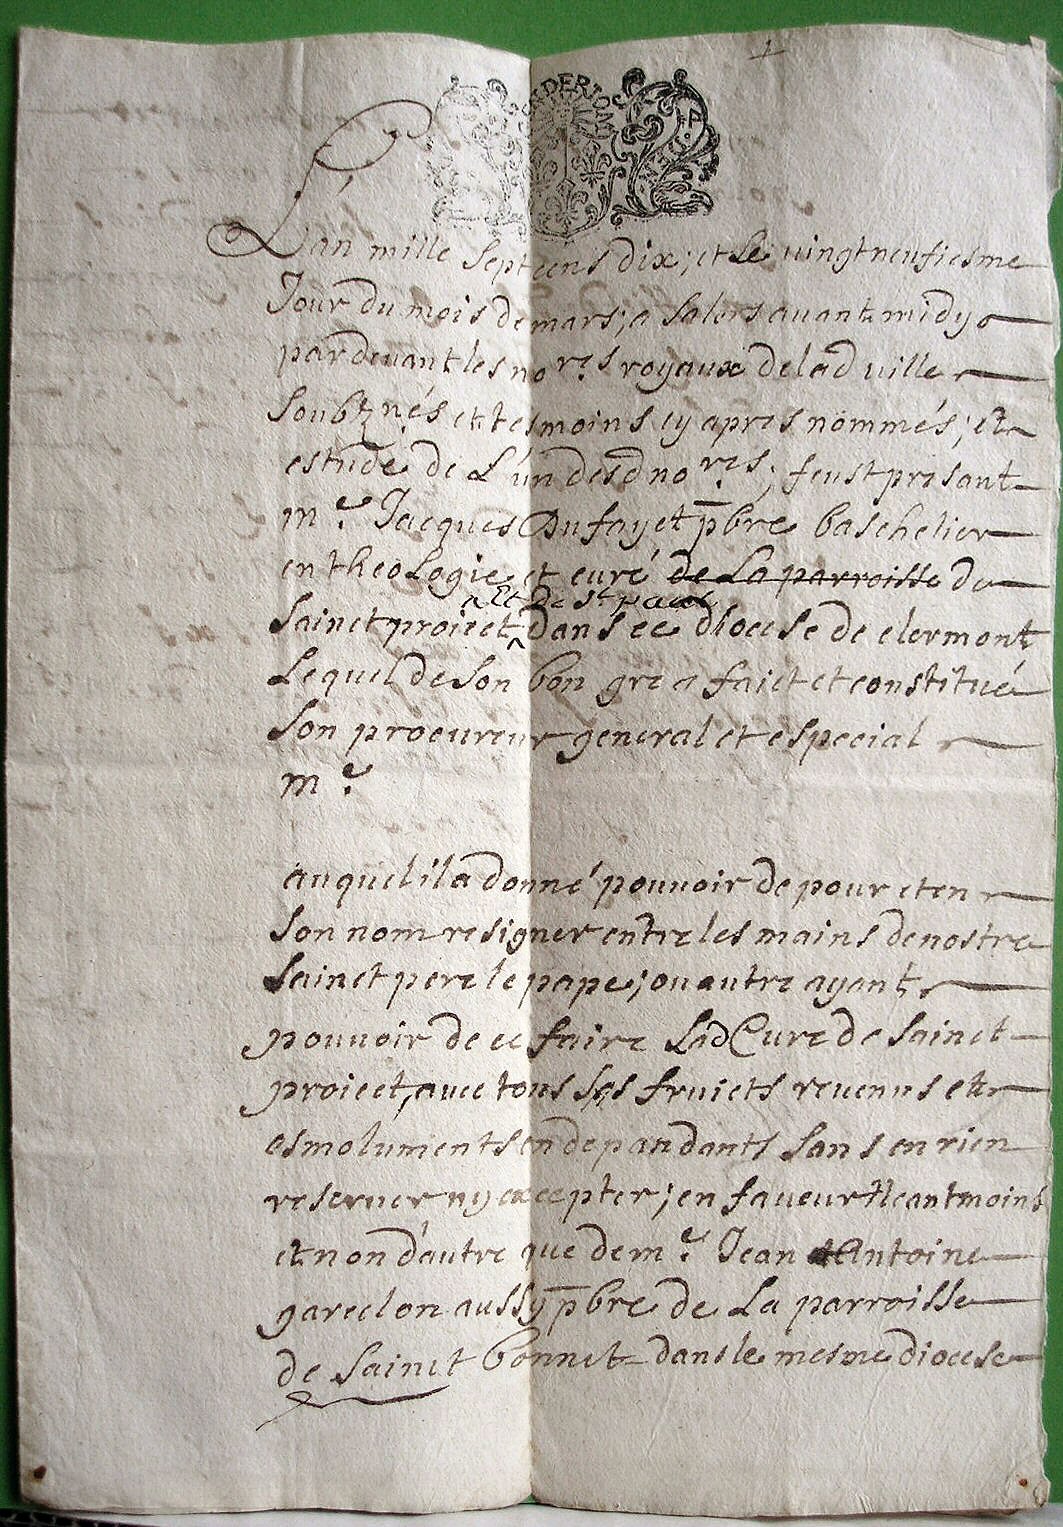 1
DERIOM
L'an mille sept cens dix; et le vingt neufiesme
Jour du mois de mars; a salers avant midy
pardevant les no.res royaux de lad ville
soubz.nés et tesmoins cy apres nommés; et
estude de L'un desd no.res; feust presant
m.e Jacques Dufayet pbre baschelier
en theologie et curé de La parroisse de
Et de St paul
sainct proiect dans ce diocese de clermont
Lequel de son bon gre a faict et constitué
son procureur general et especial
m.e
auquel il a donné pouvoir de pour et en
son nom resigner entre les mains de nostre
sainct pere le pape; ou autre ayant
pouvoir de ce faire Lad Cure de sainct
proiect, avec tous ses fruicts revenus et
esmoluments en depandants sans en rien
reserver ny excepter; en faveur Neantmoins
et non d'autre que de m.e Jean Antoine
garcelon aussy pbre de La parroisse
de sainct bonnet dans le mesme diocese